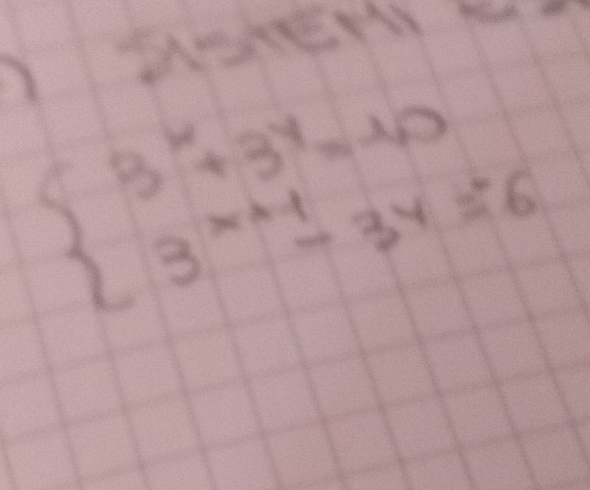 SISTEMI
3^x + 3^y = 10
3^x+1 - 3^y = -6